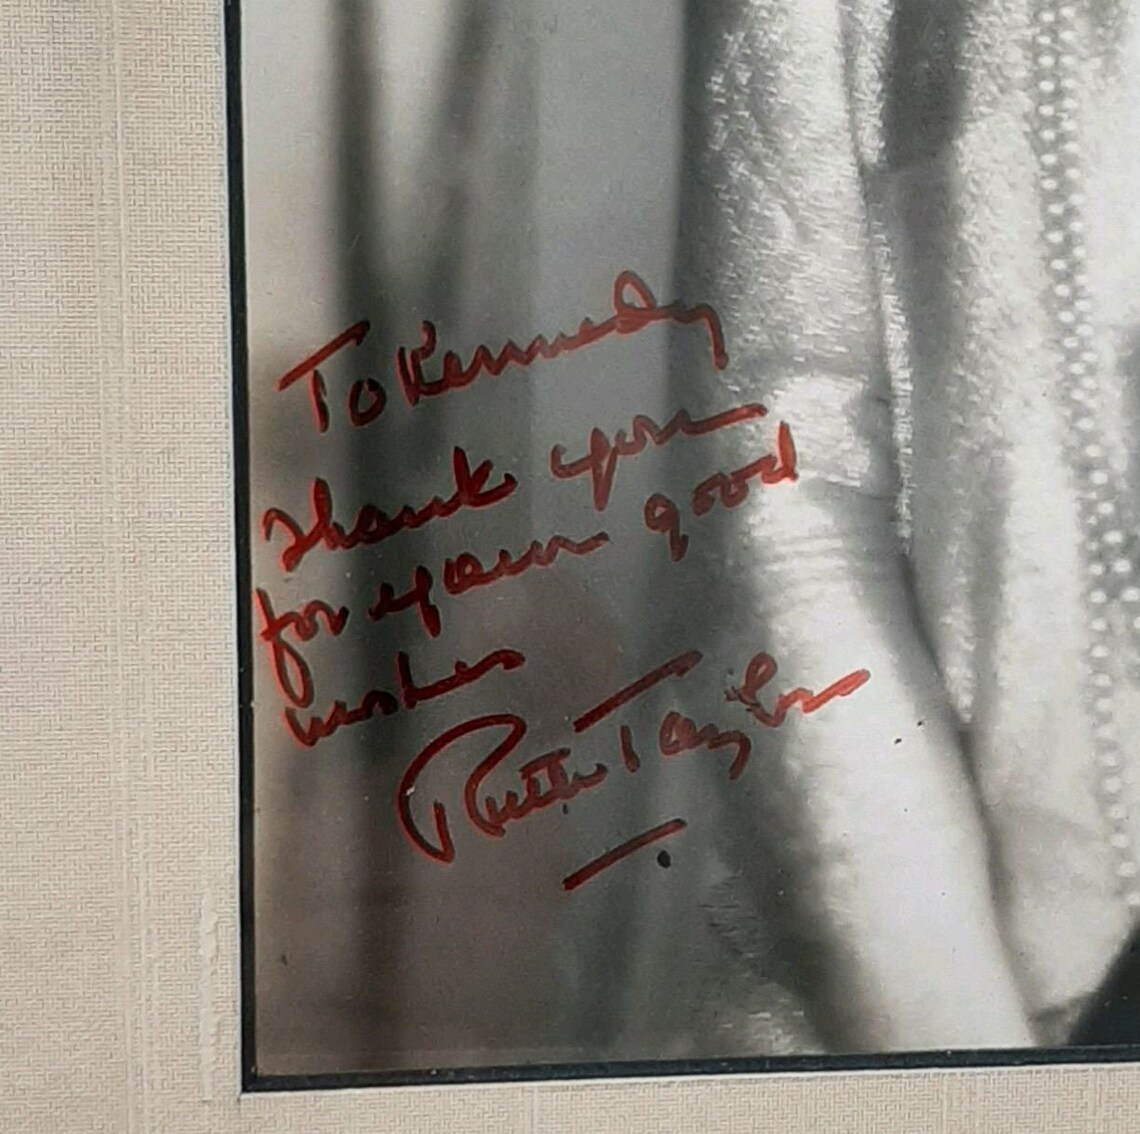 To Kennedy
Thank you
for your good
wishes
Ruth Taylor